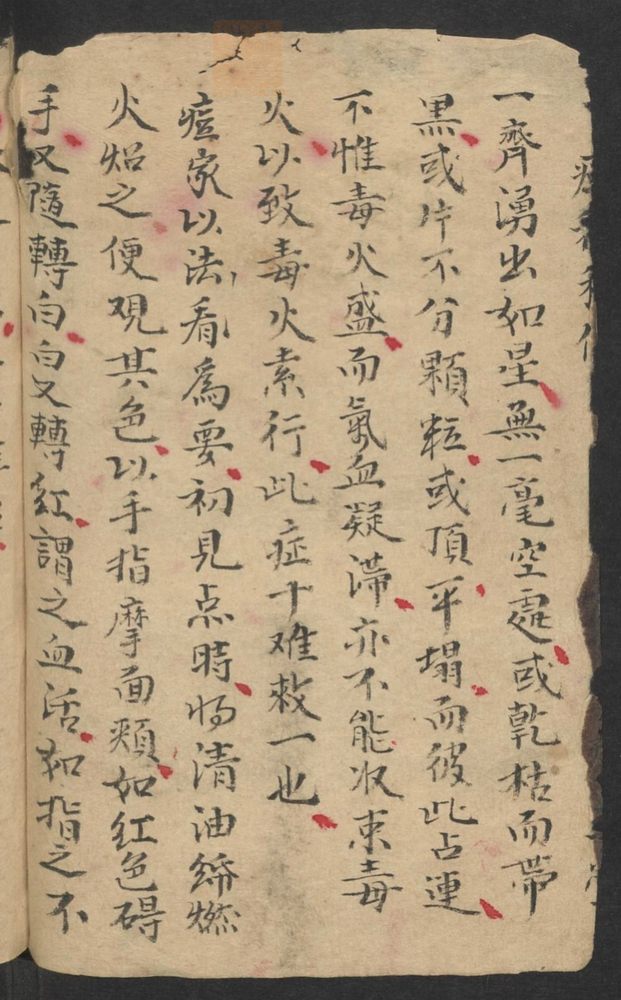 一齊湧出如星無一毫空處或乾枯而帶
黒或片不分顆粒或頂平塌而彼此占連
不惟毒火盛而氣血凝滞亦不能収束毒
火以致毒火素行此症十难救一也
痘家以法看為要初見点時 清油 燃
火焰之便观其色以手指摩面頰如红色碍
手又隨轉白白又轉紅謂之血活如指之不